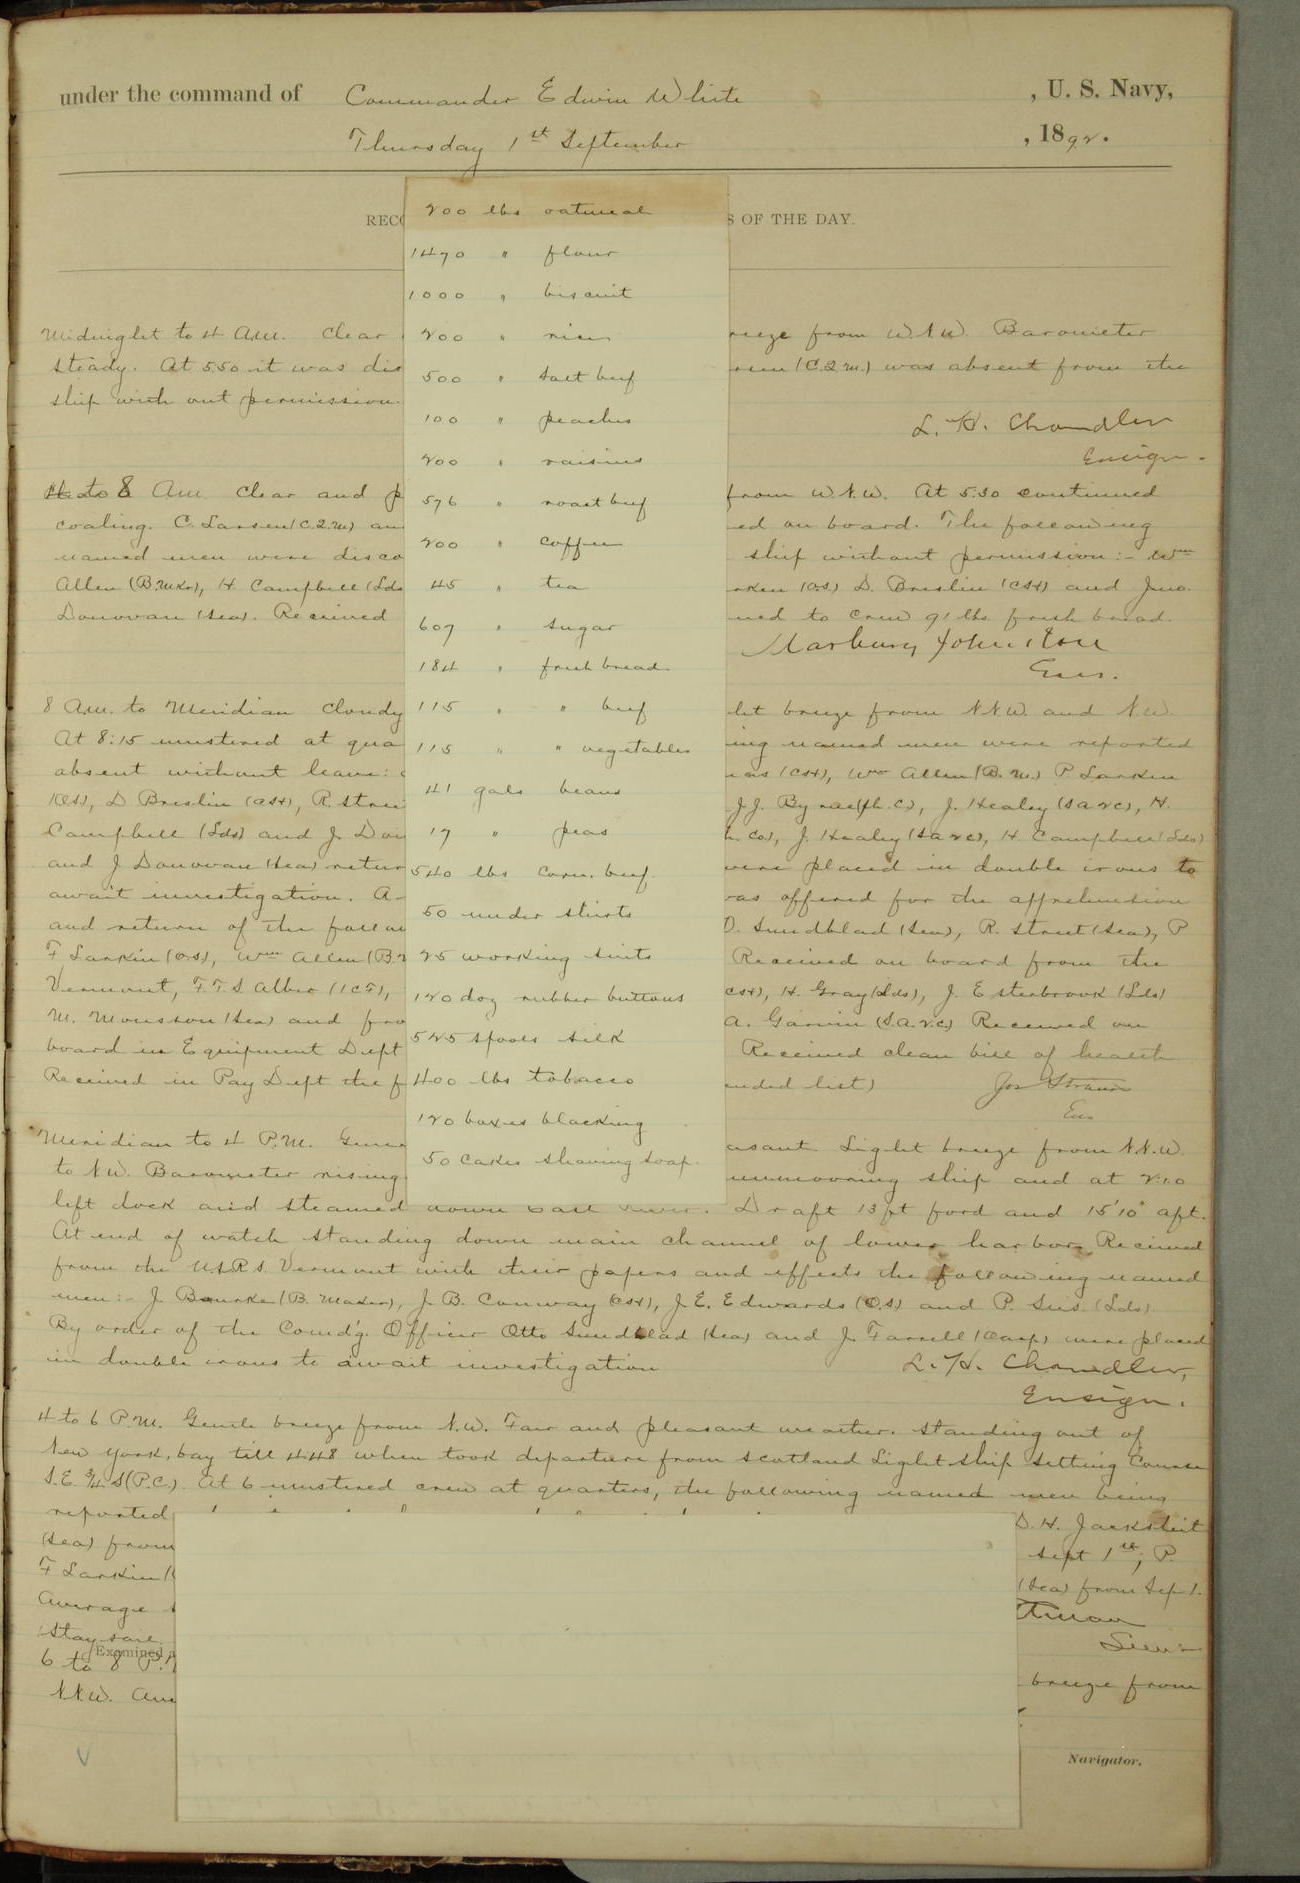 under the command of Commander Edwin White , U. S. Navy,
Thursday 1st September , 1892.
RECO S OF THE DAY.
200 lbs oatmeal
1470 " flour
1000 " biscuit
200 " rice
500 " salt beef
100 " peaches
200 " raisins
576 " roast beef
200 " coffee
45 " tea
607 " sugar
184 " fresh bread
115 " " beef
115 " " vegetables
41 gals beans
17 " peas
540 lbs corn. beef
50 under shirts
25 working suits
120 doz rubber buttons
545 spools silk
400 lbs tobacco
120 boxes blacking
50 cakes shaving soap
Midnight to 4 A.M. Clear reeze from W.N.W. Barometer
steady. At 5.50 it was dis (C.2.M.) was absent from the
ship with out permission.
L. H. Chandler
Ensign.
to 8 A.M. Clear and p from W.N.W. At 5:30 continued
coaling. C. Larsen (C.2.M) an ed on board. The following
named men were disco ship without permission:- Wm
Allen (B.Mkr), H. Campbell (Lds rken (O.S.) D. Breslin (CSH) and Jno.
Donovan (Sea). Received ued to crew 91 lbs fresh bread.
Marbury Johnston
Ens.
8 A.M. to Meridian Cloudy ht breeze from N.N.W. and N.W.
At 8:15 mustered at qua ing named men were reported
absent without leave: (CSH), Wm Allen (B.M.) P Larkin
(OS), D Breslin (CSH), R. Stree J.J. Byrne, J. Healey (SA2C), H.
Campbell (Lds) and J. Don J. Healey (SA2C), H. Campbell (Lds)
and J Donovan (Sea) retur were placed in double irons to
await investigation. A was offered for the apprehension
and return of the follow O. Sundblad (Sea), R. Street (Sea), P
F Larkin (O.S), Wm Allen (B. Received on board from the
Vermont, F.T.S Alber (1CF), CSH), H. Gray (Lds), J. Esterbrook (Lds)
M. Monsson (Sea) and fro A. Garvin (S.A.2.C.) Received on
board in Equipment Dept Received clean bill of health
Received in Pay Dept the f ended list) Jos Strauss
Ens
Meridian to 4 P.M. Gen asant Light breeze from N.N.W.
to N.W. Barometer rising. unmooring ship and at 2:10
left dock and steamed down East River. Draft 13 ft ford and 15'10" aft.
At end of watch standing down main channel of lower harbor. Received
from the U.S.R.S. Vermont with their papers and effects the following named
men:- J. Bourke (B. Maker), J. B. Conway (CSH), J. E. Edwards (O.S) and P. Sus (Lds)
By order of the Comd'g. Officer Otto Sundblad (Sea) and J. Farrell (Carp) were placed
in double irons to await investigation L. H. Chandler,
Ensign.
4 to 6 P.M. Gentle breeze from N.W. Fair and pleasant weather. Standing out of
New York, bay till 4.48 when took departure from Scotland Light Ship setting Course
S.E. 3/4 S (P.C.). At 6 mustered crew at quarters, the following named men being
reported D. H. Jacksteit
(Sea) from Sept 1st, P.
F Larkin ( (Sea) from Sep 1.
Average
Stay sail.
Examined
6 to 8 P.M breeze from
N.N.W.
Navigator.